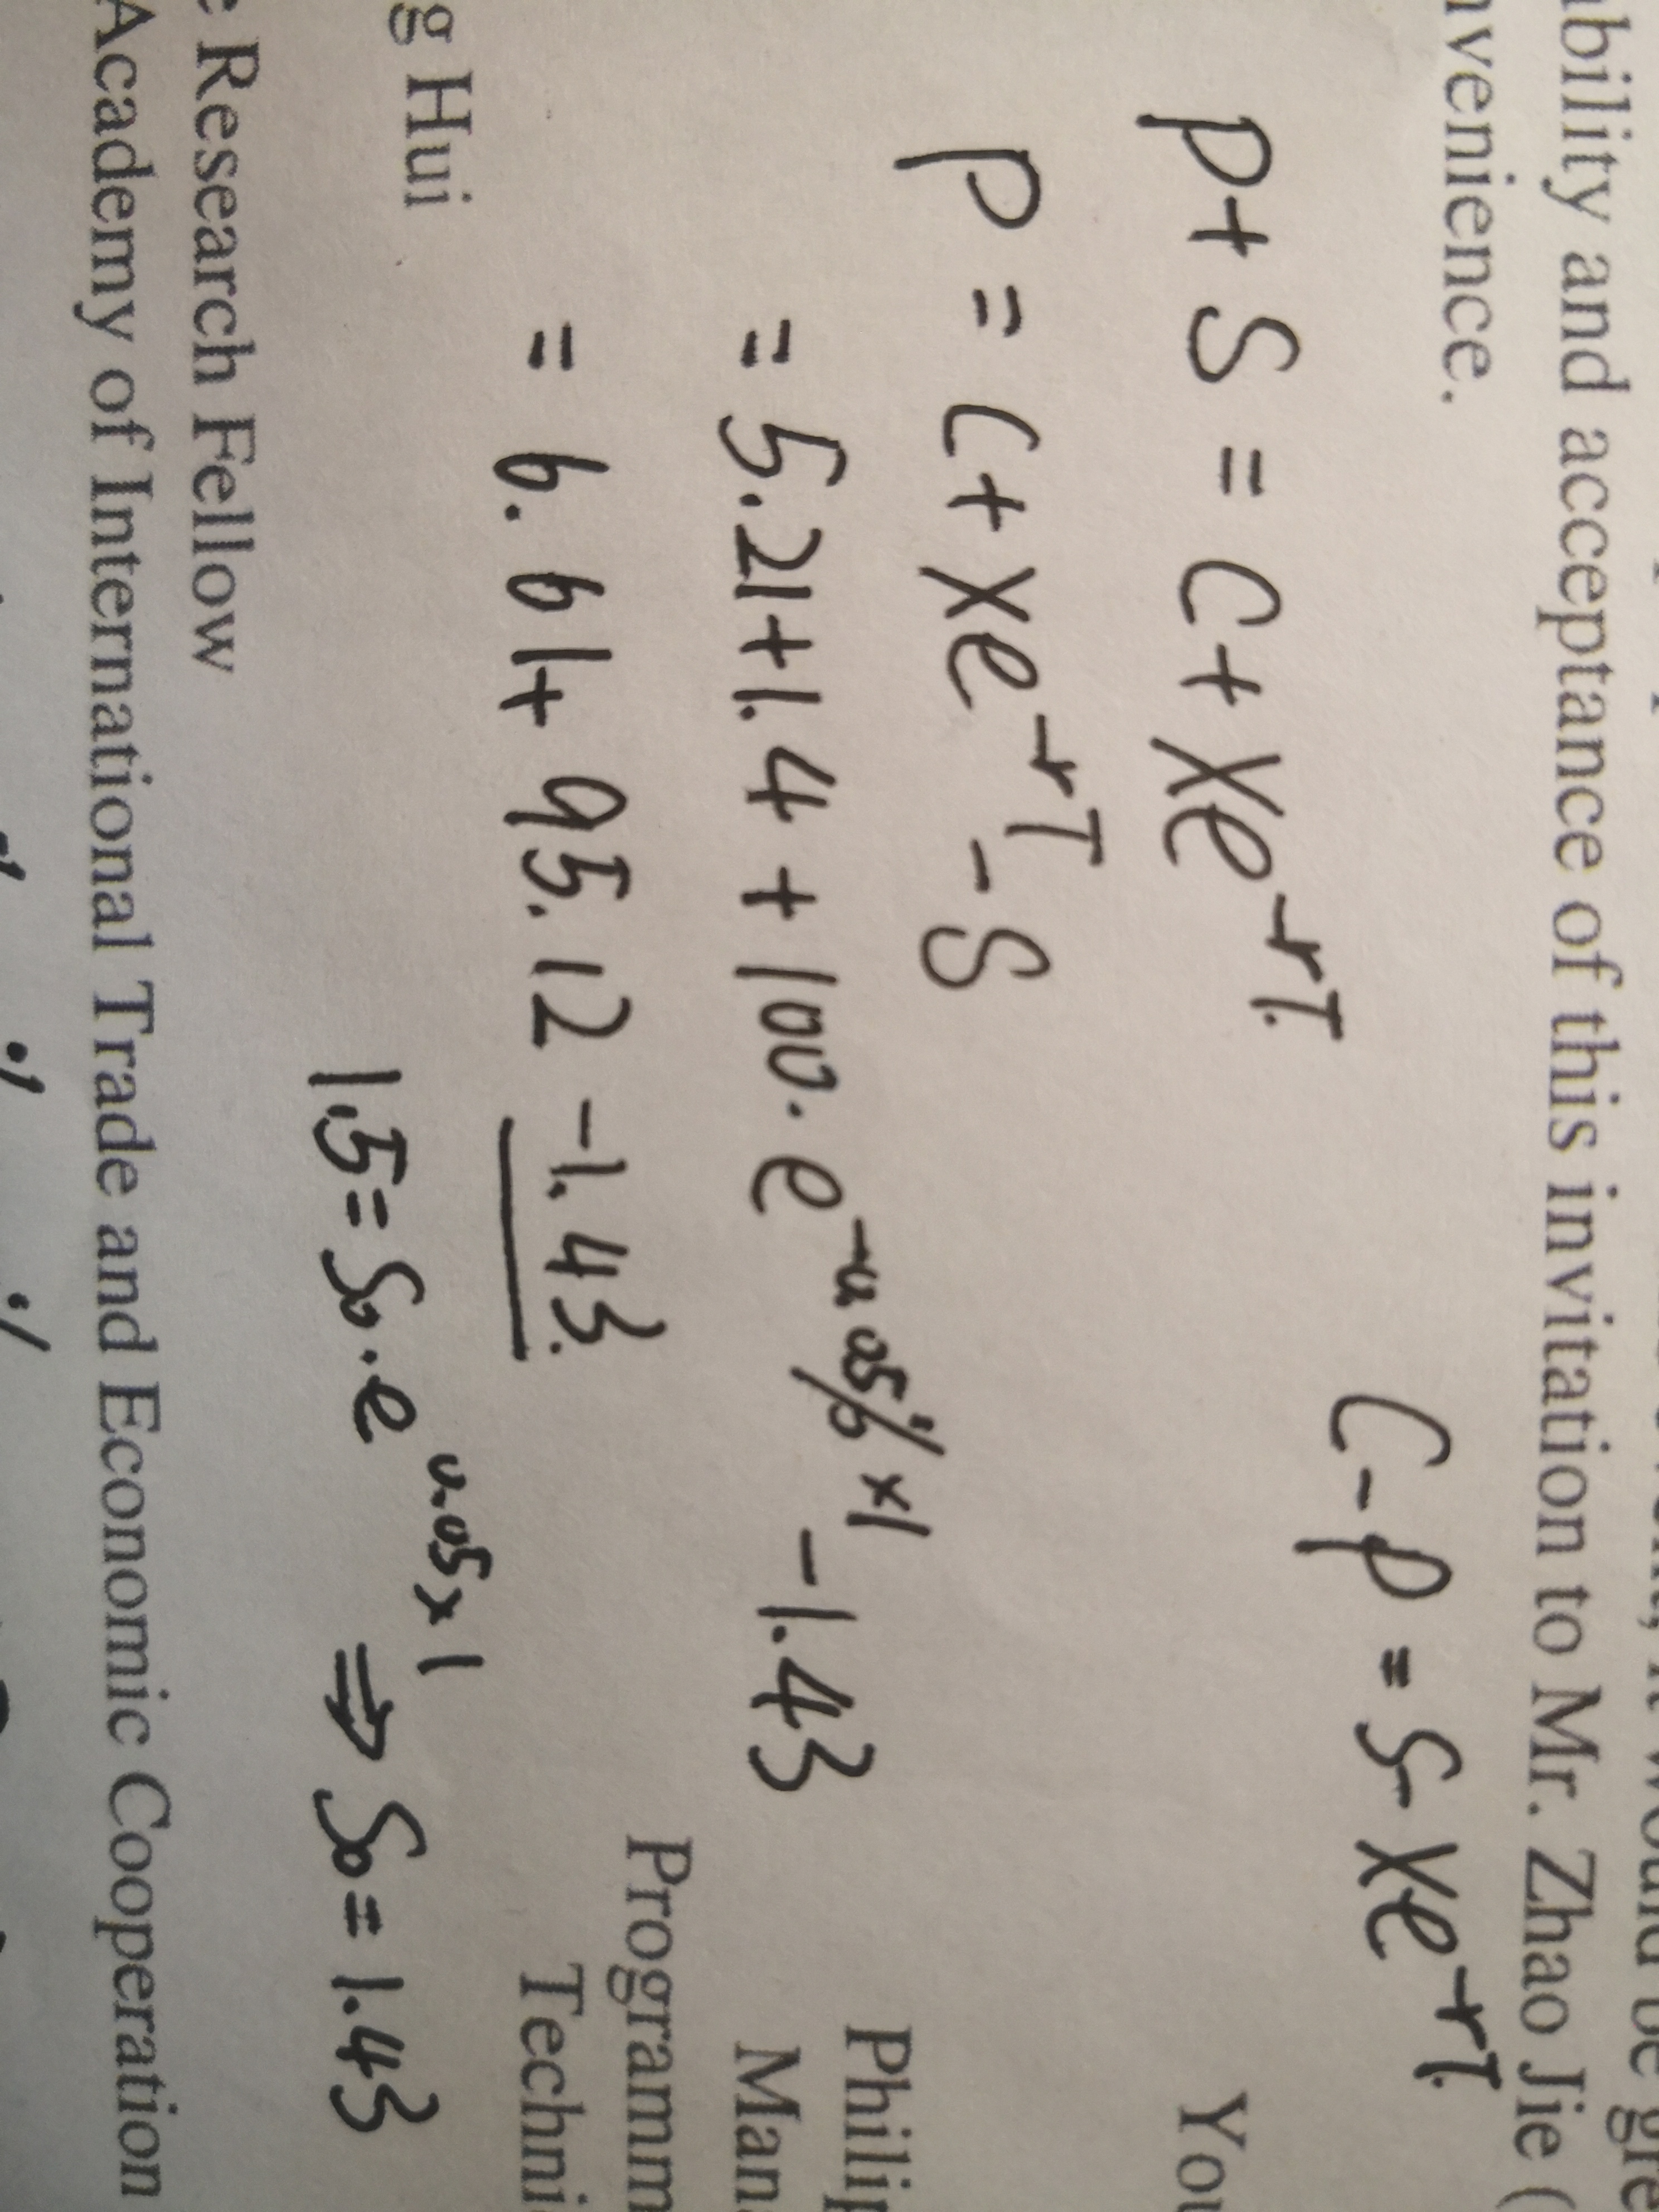 bility and acceptance of this invitation to Mr. Zhao Jie (
nvenience.
C-P = S-Xe^-rT.
P+S = C+Xe^-rT.
You
P = C+Xe^-rT -S
Philip
= 5.21+1.4+100.e^-0.05%×1 -1.43
Man
Programm
= 6.61+95.12-1.43.
Techni
g Hui
1.5=S0.e^0.05×1 ⇒ S0=1.43
Research Fellow
Academy of International Trade and Economic Cooperation